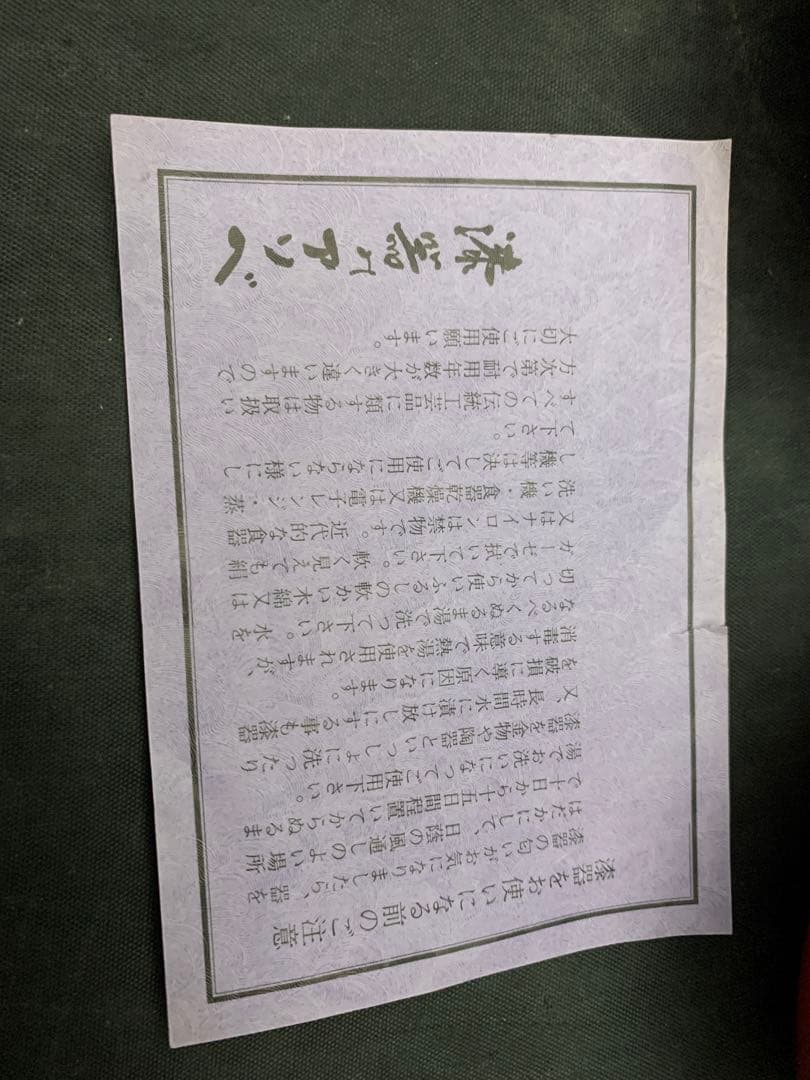 漆器をお使いになる前のご注意
漆器の匂いがお気になりましたら、器を
はだかにして、日蔭の風通しのよい場所
で十日から十五日間程置いてからぬるま
湯でお洗いになってご使用下さい。
漆器を金物や陶器といっしょに洗ったり
又、長時間水に漬け放しにする事も漆器
を破損に導く原因になります。
消毒する意味で熱湯を使用されますが、
なるべくぬるま湯で洗って下さい。水を
切ってから使いふるしの軟かい木綿又は
ガーゼで拭いて下さい。軟く見えても絹
又はナイロンは禁物です。近代的な食器
洗い機・食器乾燥機又は電子レンジ・蒸
し機等は決してご使用にならない様にし
て下さい。
すべての伝統工芸品に類する物は取扱い
方次第で耐用年数が大きく違いますので
大切にご使用願います。
漆器のアソベ